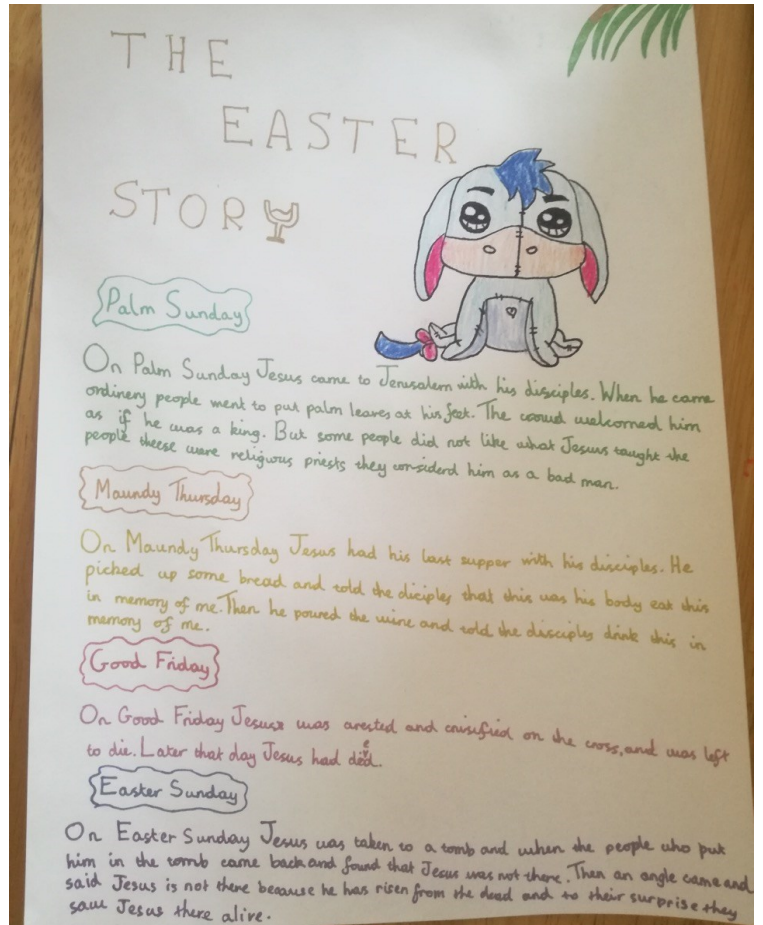 THE
EASTER
STORY
Palm Sunday
On Palm Sunday Jesus came to Jerusalem with his disciples. When he came
ordinery people went to put palm leaves at his feet. The crowd welcomed him
as if he was a king. But some people did not like what Jesus taught the
people theese were religious priests they considerd him as a bad man.
Maundy Thursday
On Maundy Thursday Jesus had his last supper with his disciples. He
picked up some bread and told the diciples that this was his body eat this
in memory of me. Then he poured the wine and told the disciples drink this in
memory of me.
Good Friday
On Good Friday Jesus was arested and crusified on the cross, and was left
to die. Later that day Jesus had died.
Easter Sunday
On Easter Sunday Jesus was taken to a tomb and when the people who put
him in the tomb came back and found that Jesus was not there. Then an angle came and
said Jesus is not there because he has risen from the dead and to their surprise they
saw Jesus there alive.